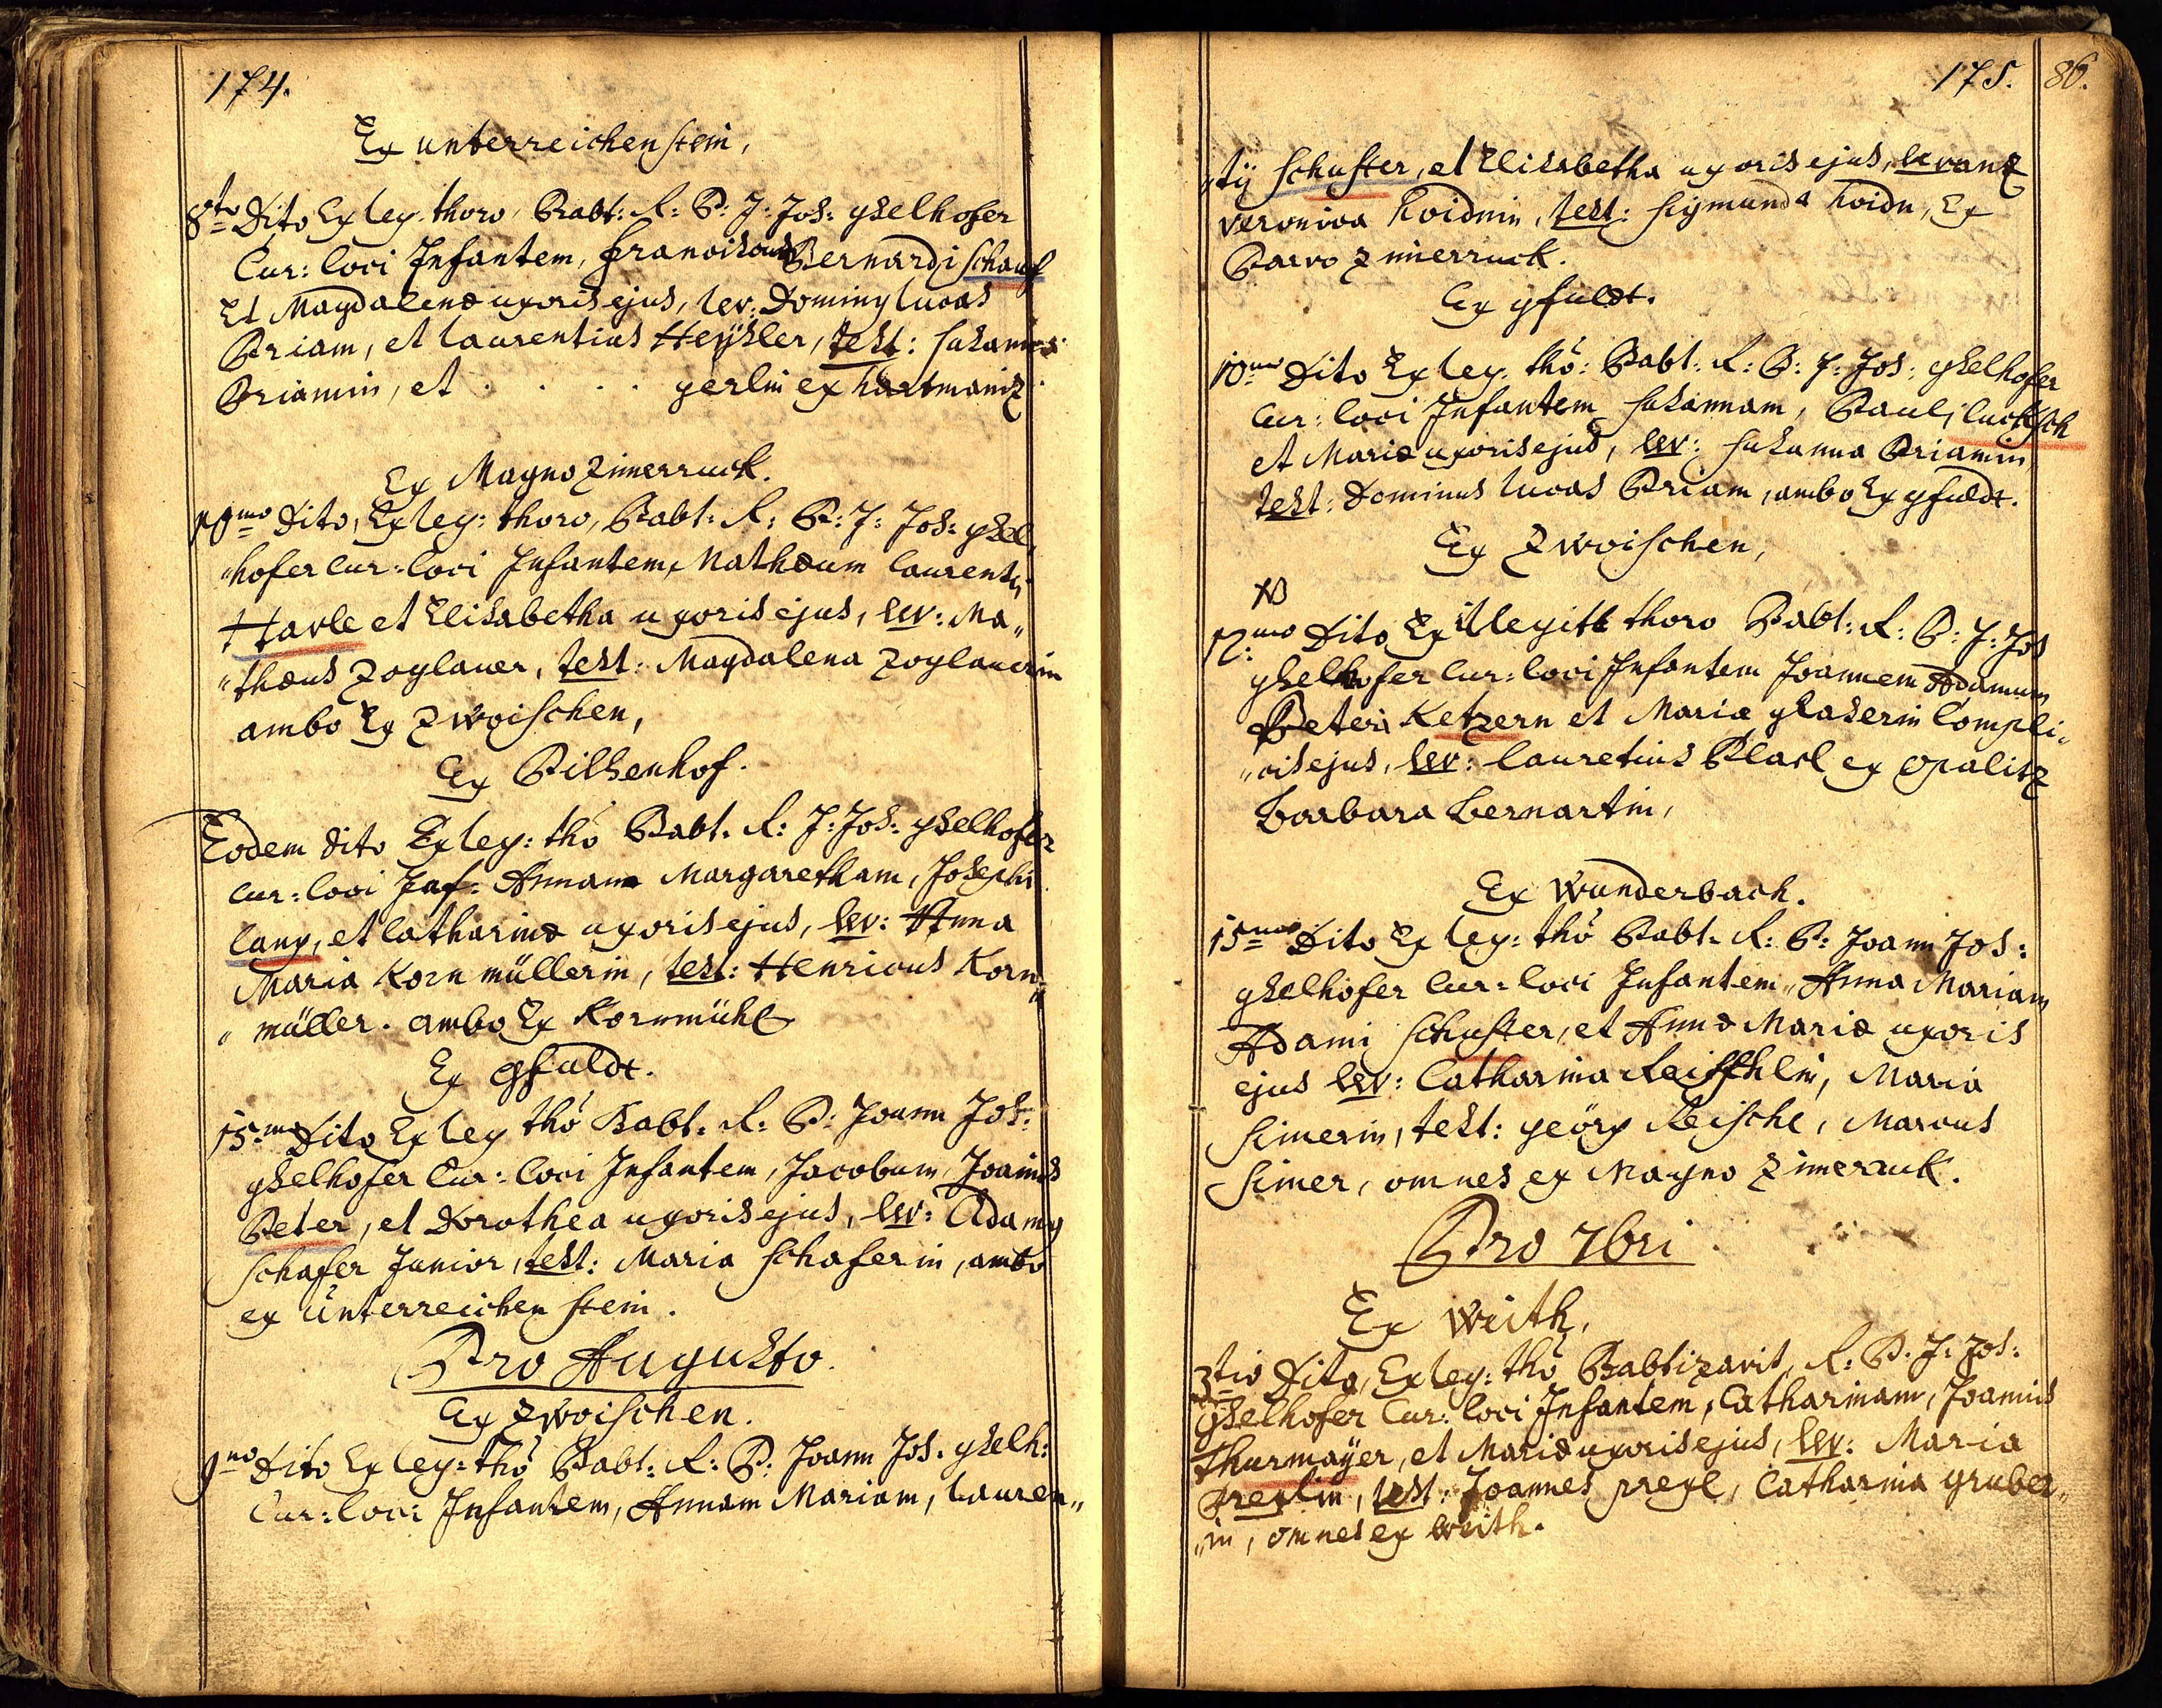 174.
Ex unterreichenstein,
8to Dito Ex leg: thoro, Babt: R: P: J: Jos: gselhofer
Cur: loci Infantem, Bernardi schauf
Et Magdalenæ uxoris ejus, lev: Doming lucas
Priam, et laurentius Heysler, test: susanna
Priamin, et . . . . gerlin ex hartmaniz
Ex Magno Zimerruck.
10mo Dito, Ex leg: thoro, Babt: R: P: J: Jos: gsel„
„hofer Cur: loci Infantem, Mathæum laurenti
Havle et Elisabetha uxoris ejus, lev: Ma„
„thæus Zoglauer, test: Magdalena Zoglauerin
ambo Ex Zwoischen,
Ex Pilsenhof.
Eodem dito Ex leg: thõ Babt. R: J: Jos: gselhofer
Cur: loci Inf: Annam Margaretham, Josephi
lang, et Catharinæ uxoris ejus, lev: Anna
Maria Kornmüllerin, test: Henricus Korn„
„müller. ambo Ex Kornmühl
Ex gfuldt.
15mo Dito Ex leg thõ Babt. R: P: Joann Jos:
gselhofer Cur: loci Infantem, Jacobum, Joannis
Peter, et Dorothea uxoris ejus, lev: Adamg
schafer Junior, test: Maria schaferin, ambo
ex Unterreichenstein.
Pro Augusto.
Ex Zwoischen.
9no Dito Ex leg: thõ Babt: R: P: Joann Jos. gselh:
Cur: loci Infantem, Annam Mariam, lauren„
175. 86.
„tÿ schuster, et Elisabetha uxoris ejus,
veronica Koidnin, test: sigmund Koidn, Ex
Parvo Zimerruck.
Ex gfuldt.
10mo Dito Ex leg: thõ: Babt: R: P: J: Jos: gselhofer
Cur: loci Infantem susannam, Pauli luksch
et Mariæ uxoris ejus, lev: susanna Priamin,
test: Dominus lucas Priam, ambo Ex gfuldt.
Ex Zwoischen,
NB
12mo Dito Ex illegit thoro Babt: R: P: J: Jos
gselhofer Cur: loci Infantem Joannem Adamum
Peteri Ketzern et Mariæ glaserin Compli„
„cis ejus, lev: lauretius Plarl ex opalitz
Barbara Bernartin,
Ex Wunderbach.
15mo Dito Ex leg: thõ Babt. R: P: Joann Jos:
gselhofer Cur: loci Infantem, Anna Mariam
Adami schuster, et Annæ Mariæ uxoris
ejus lev: Catharina Reischlin, Maria
simerin, test: geörg Reischl, Marcus
simer, omnes ex Magno Zimeruck.
Pro 7bri
Ex Weith,
3tio Dito, Ex leg: thõ Babtizavit, R: P: J: Jos:
gselhofer Cur: loci Infantem, Catharinam, Joannis
thurmaÿer, et Mariæ uxoris ejus, lev: Maria
prexlin, test: Joannes prexl, Catharina gruber„
„in, omnes ex Weith.